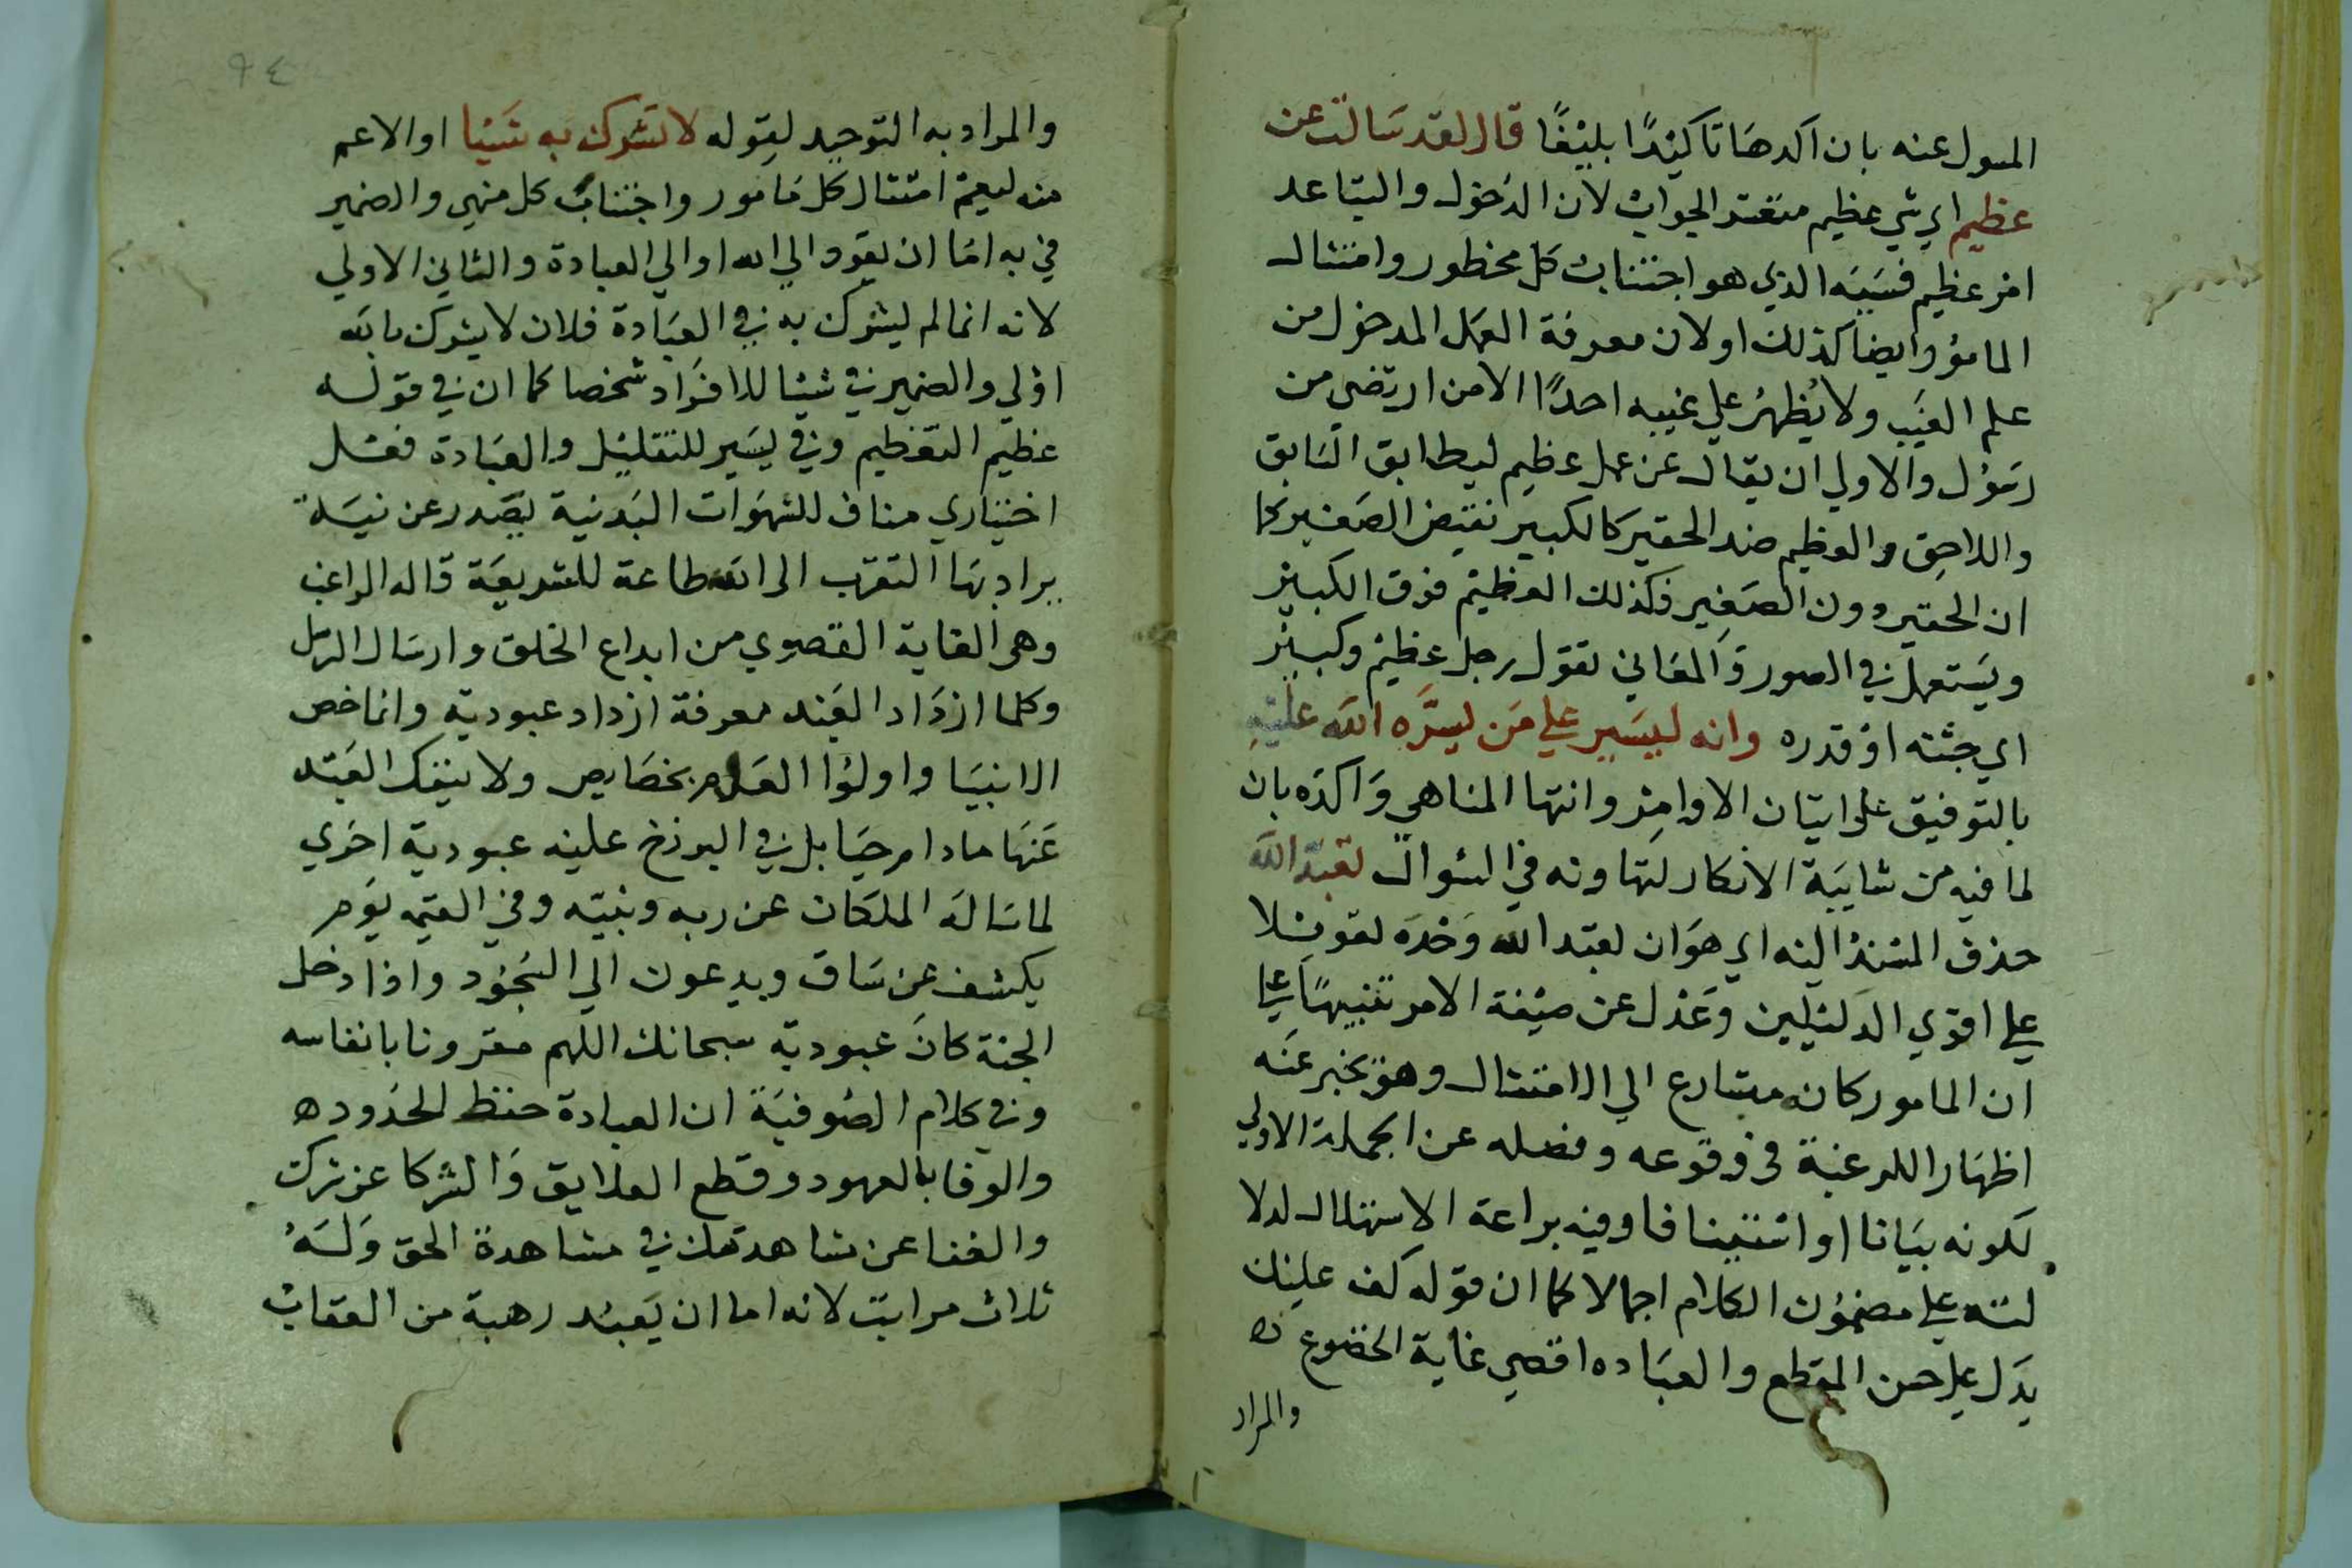 المسول عنه بان اكدها تاكيدًا بليغًا قال لقد سالت عن
عظيم اي شي عظيم متعسر الجواب لان الدخول والتباعد
امر عظيم فسببه الذي هو اجتناب كل محظور وامتثال
المامور وايضا كذلك او لان معرفة العمل المدخول من
علم الغيب ولا يُظهرُ علي غيبه احدًا الا من ارتضي من
رسول والاولي ان يقال عن عمل عظيم ليطابق السابق
واللاحق والعظيم ضد الحقير كالكبير نقيض الصغير كما
ان الحقير دون الصغير فكذلك العظيم فوق الكبير
ويستعمل في الصور والمعاني تقول رجل عظيم وكبير
اي جثته او قدره وانه ليسير علي من يسره الله عليه
بالتوفيق على اتيان الاوامر وانتها المناهي واكده بان
لما فيه من شايبة الانكار لتهاونه في السوال تعبد الله
حذف المسند اليه اي هو ان تعبد الله وحده تعويلا
علي اقوي الدليلين وعدل عن صيغة الامر تنبيهًا علي
ان المامور كانه متسارع الي الامتثال وهو يخبر عنه
اظهارا للرغبة في وقوعه وفصله عن الجملة الاولي
لكونه بيانا او استينافا وفيه براعة الاستهلال لدلا
لته علي مضمون الكلام اجمالا كما ان قوله كف عليك
يدل علي حسن المقطع والعباده اقصي غاية الخضوع
والمراد
٩٤
والمراد به التوحيد لقوله لا تشرك به شيئا او الاعم
منه ليعم امتثال كل مامور واجتناب كل منهي والضمير
في به اما ان يعود الي الله او الي العبادة والثاني الاولي
لانه انما لم يشرك به في العبادة فلان لا يشرك بالله
اولي والضمير في شيئا للافراد شخصا كما ان في قوله
عظيم التعظيم وفي يسير للتقليل والعبادة فعل
اختياري مناف للشهوات البدنية يصدر عن نية
يراد بها التقرب الى الله طاعة للشريعة قاله الراغب
وهى الغاية القصوي من ابداع الخلق وارسال الرسل
وكلما ازداد العبد معرفة ازداد عبودية وانما خص
الانبيا واولوا العلم بخصايص ولا ينفك العبد
عنها مادام حيا بل في البرزخ عليه عبودية اخري
لما ساله الملكان عن ربه ونبيه وفي القيمه يوم
يكشف عن ساق ويدعون الي السجود واذا دخل
الجنة كان عبودية سبحانك اللهم مقرونا بانفاسه
وفي كلام الصوفية ان العبادة حفظ الحدود
والوفا بالعهود وقطع العلايق والشركا عن شرك
والفنا عن مشاهدتك في مشاهدة الحق وله
ثلاث مراتب لانه اما ان يعبد رهبة من العقاب